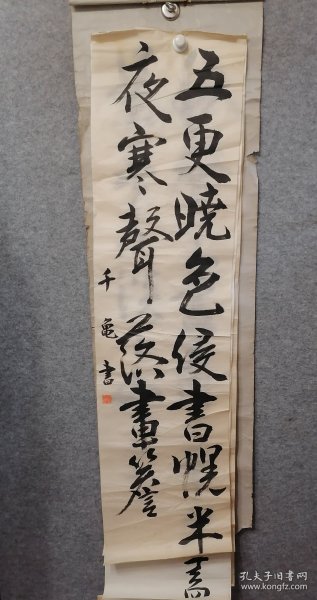 五更暁色侵書幌半
夜寒聲落畫簷
千亀書
孔夫子旧书网
www.kongfz.com